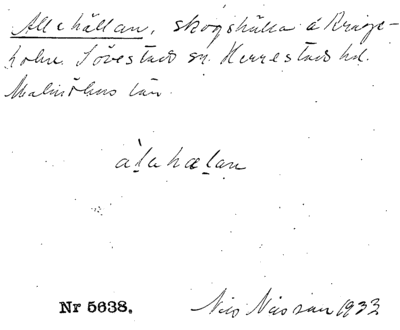 Allehällan, skogshälla å Krage-
holm. Sövestad sn. Herrestads hd.
Malmöhus län.
àl̠ahæl̠an
Nr 5638. Nils Nilsson 1933